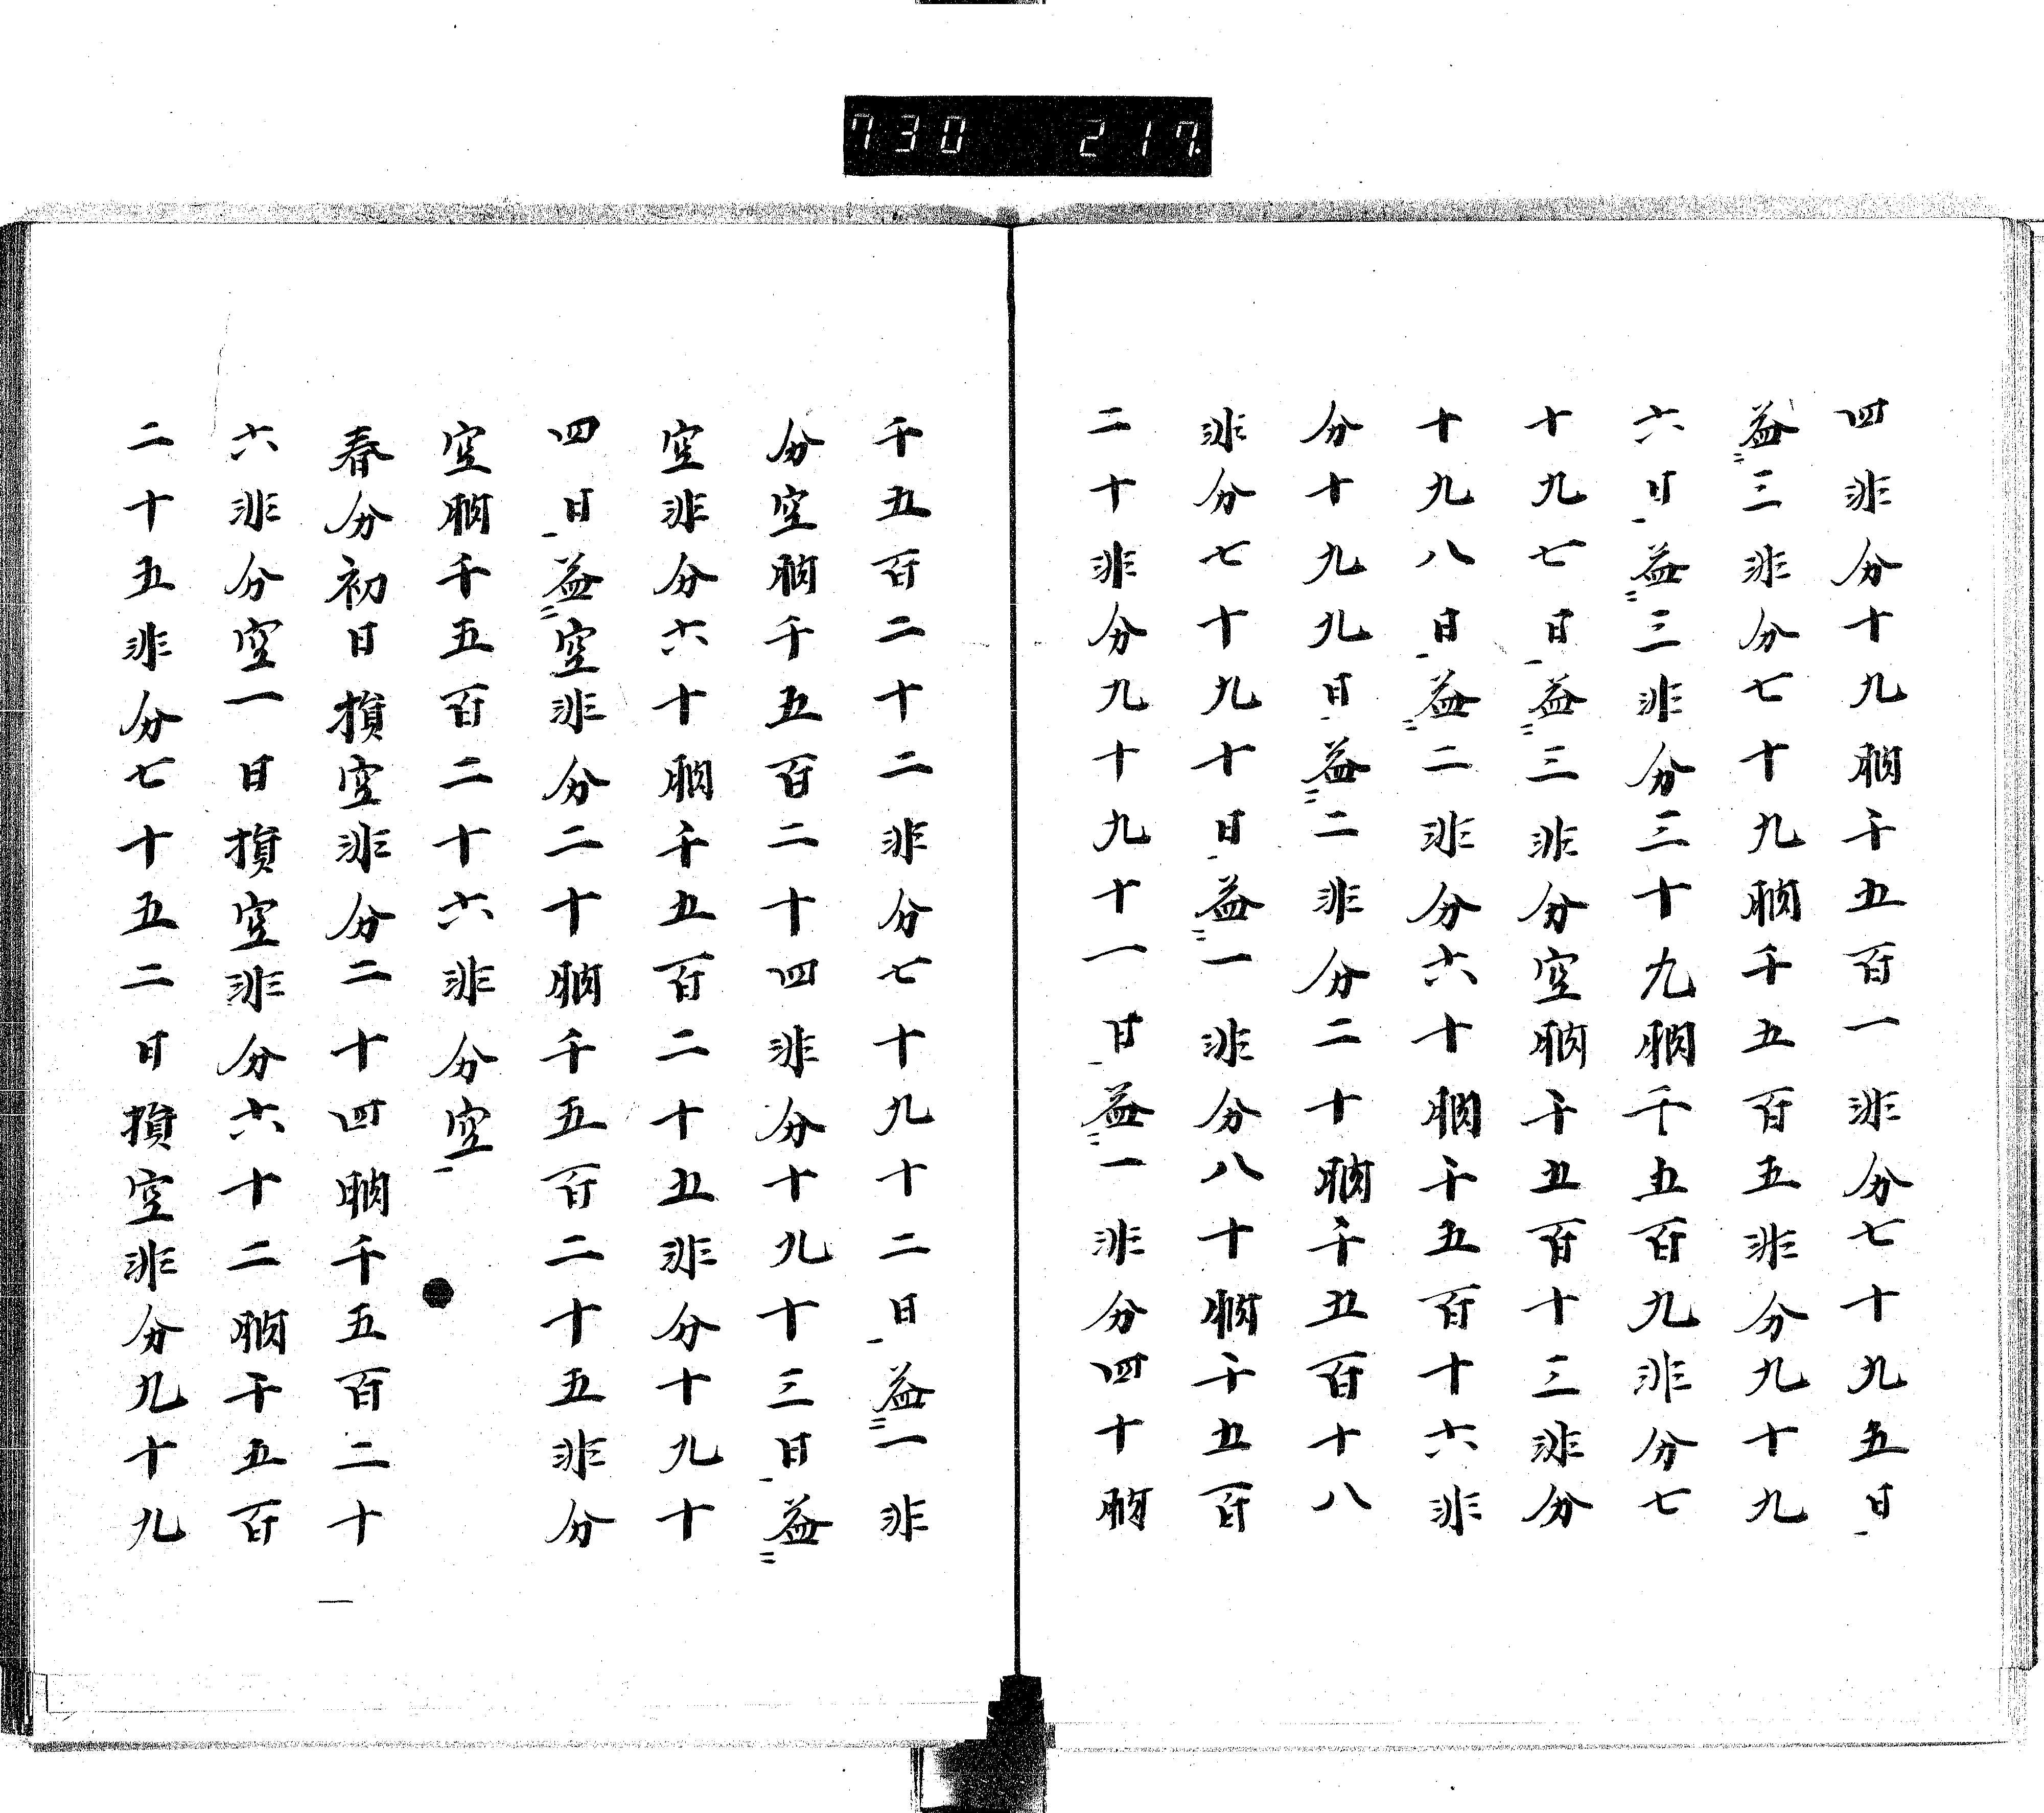 730 217.
四非分十九朒千五百一非分七十九五日
益三非分七十九朒千五百五非分九十九
六日益三非分三十九朒千五百九非分七
十九七日益三非分空朒千五百十三非分
十九八日益二非分六十朒千五百十六非
分十九九日益二非分二十朒千五百十八
非分七十九十日益一非分八十朒千五百
二十非分九十九十一日益一非分四十朒
千五百二十二非分七十九十二日益一非
分空朒千五百二十四非分十九十三日益
空非分六十朒千五百二十五非分十九十
四日益空非分二十朒千五百二十五非分
空朒千五百二十六非分空
春分初日損空非分二十四朒千五百二十
六非分空一日損空非分六十二朒千五百
二十五非分七十五二日損空非分九十九